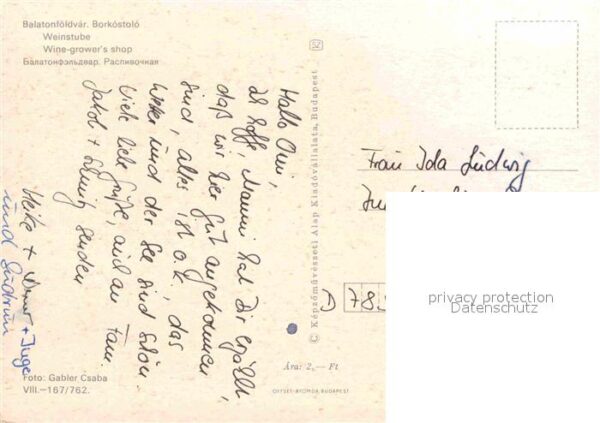 Balatonföldvár. Borkóstoló
Weinstube
Wine-grower's shop
Балатонфэльдвар. Распивочная
Hallo Omi,
ich hoffe, Mammi hat Dir erzählt,
daß wir hier gut angekommen
sind, alles ist o.k., das
Wetter und der See sind schön.
Viele liebe Grüße, auch an Fam.
Jakob + senden
Heike + + Inge
und Gudrun
Foto: Gabler Csaba
VIII.—167/762.
52
© Képzőművészeti Alap Kiadóvállalata, Budapest
Ára: 2,— Ft
OFFSET-NYOMDA BUDAPEST
Frau Ida Ludwig
D 78
privacy protection
Datenschutz